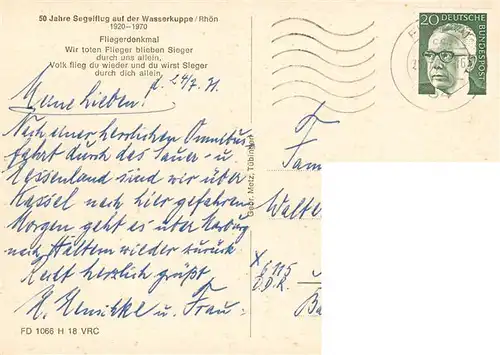 50 Jahre Segelflug auf der Wasserkuppe/Rhön
1920–1970
Fliegerdenkmal
Wir toten Flieger blieben Sieger
durch uns allein,
Volk flieg du wieder und du wirst Sieger
durch dich allein.
d. 24/7. 71.
Meine Lieben!
Nach einer herrlichen Omnibus
fahrt durch das Sauer- u.
Hessenland sind wir über
Kassel nach hier gefahren
Morgen geht es über Marburg
nach Haltern wieder zurück.
Recht herzlich grüßt
u. Frau
FD 1066 H 18 VRC
Gebr. Metz, Tübingen
20 DEUTSCHE
BUNDESPOST
Fam
Walte
X 6115
D.D.R.